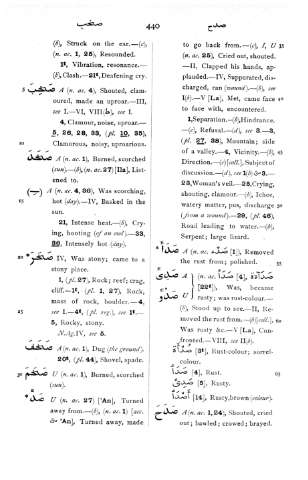 صخب
440
صدح
(b), Struck on the ear.—(c)
(n. ac. 1, 25), Resounded.
1t, Vibration, resonance.—
(b), Clash.—21t, Deafening cry.
5 صَخِبَ A (n. ac. 4), Shouted, clam-
oured, made an uproar.—III,
see I.—VI, VIII (ط), see I.
4, Clamour, noise, uproar.—
5, 26, 28, 33, (pl. 10, 35),
Clamorous, noisy, uproarious.
A (n. ac. 1), Burned, scorched
(sun).—(b), (n. ac. 27) [Ila], List-
ened to.
(—) A (n. ac. 4, 36), Was scorching,
hot (day).—IV, Basked in the
sun.
21, Intense heat.—(b), Cry-
ing, hooting (of an owl).—33,
39, Intensely hot (day).
IV, Was stony; came to a
stony place.
1, (pl. 27), Rock; reef; crag,
cliff.—1t, (pl. 1, 27), Rock,
mass of rock, boulder.—4,
see 1.—4t, (pl. reg.), see 1t.—
5, Rocky, stony.
N.Ag. IV, see 5.
A (n. ac. 1), Dug (the ground).
20t, (pl. 44), Shovel, spade.
U (n. ac. 1), Burned, scorched
(sun).
صَدَّ U (n. ac. 27) ['An], Turned
away from.—(b), (n. ac. 1) [acc.
& 'An], Turned, made
to go back from.—(c), I, U
(n. ac. 25), Cried out, shouted.
—II, Clapped his hands, ap-
plauded.—IV, Suppurated, dis-
charged, ran (wound).—(b), see
I(b).—V [La], Met, came face
to face with, encountered.
1, Separation.—(b), Hindrance.
—(c), Refusal.—(d), see 3.—3,
(pl. 27, 38), Mountain; side
of a valley.—4, Vicinity.—(b),
Direction.—(c) [coll.], Subject of
discussion.—(d), see 1(b).—
Woman's veil.—25, Crying,
shouting, clamour.—(b), Ichor,
watery matter, pus, discharge
(from a wound).—29, (pl. 46),
Road leading to water.—(b),
Serpent; large lizard.
صَدَأَ A (n. ac. [1]), Removed
the rust from; polished.
صَدِئَ A (n. ac. [4], صَدَاءَة
صَدُؤَ U [22t]), Was, became
rusty; was rust-colour.—
(b), Stood up to see.—II, Re-
moved the rust from.—(b) [coll.],
Was rusty &c.—V [La], Con-
fronted.—VIII, see II(b).
صُدْأَة [3t], Rust-colour; sorrel-
colour.
صَدَأ [4], Rust.
صَدِئ [5], Rusty.
[14], Rusty, brown (colour).
صَدَحَ A (n. ac. 1, 24), Shouted, cried
out; bawled; crowed; brayed.